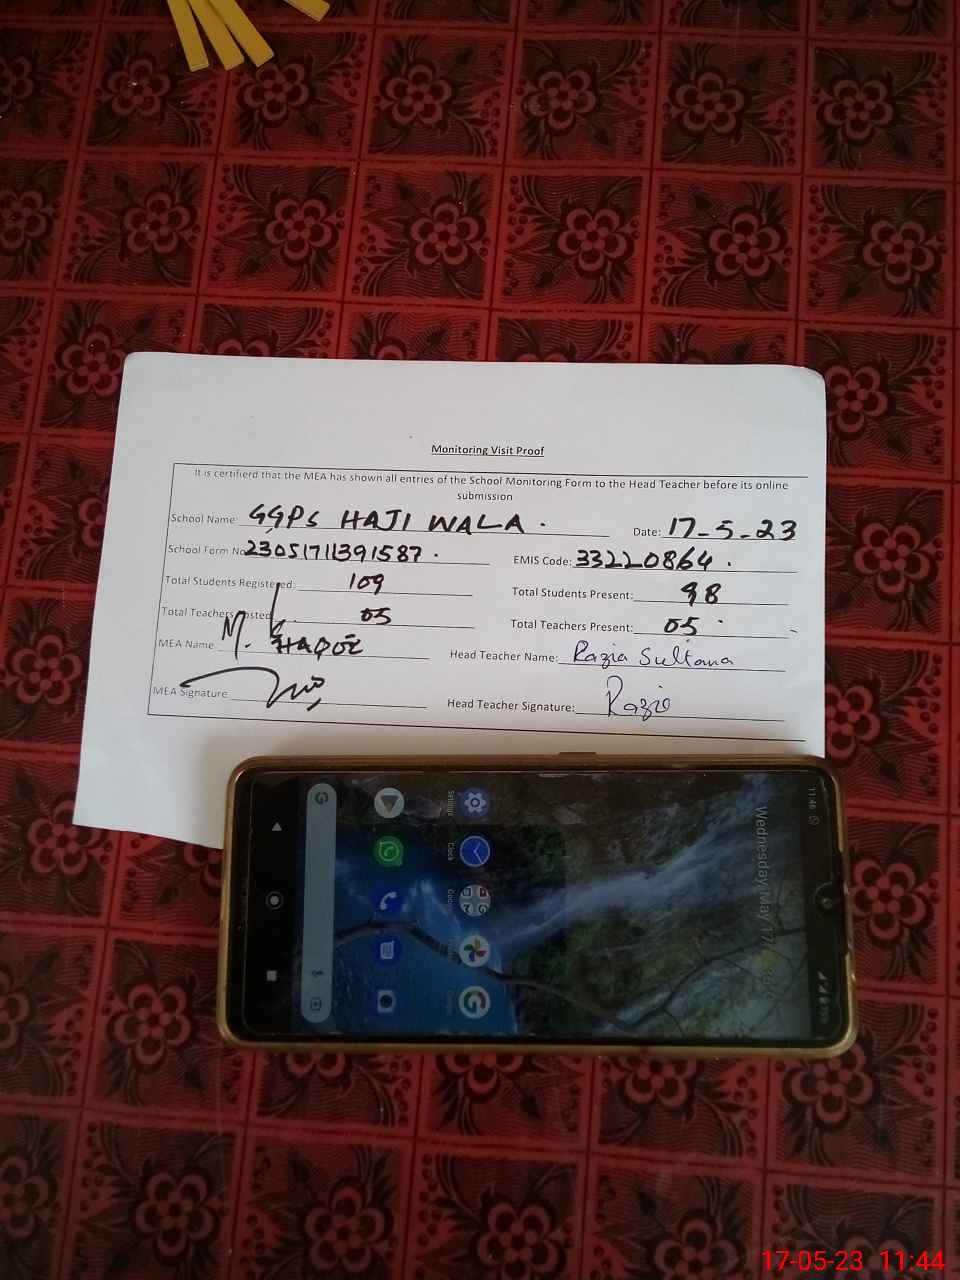 Monitoring Visit Proof
It is certifierd that the MEA has shown all entries of the School Monitoring Form to the Head Teacher before its online
submission
School Name: GGPS HAJI WALA . Date: 17-5-23
School Form No 23051711391587 . EMIS Code: 33220864 .
Total Students Registered: 109 Total Students Present: 98
Total Teachers Posted: 05 Total Teachers Present: 05
MEA Name M. HAQUE Head Teacher Name: Razia Sultana
MEA Signature Head Teacher Signature: Razia
11:46
Wednesday, May 17,
Settings
Clock
17-05-23 11:44